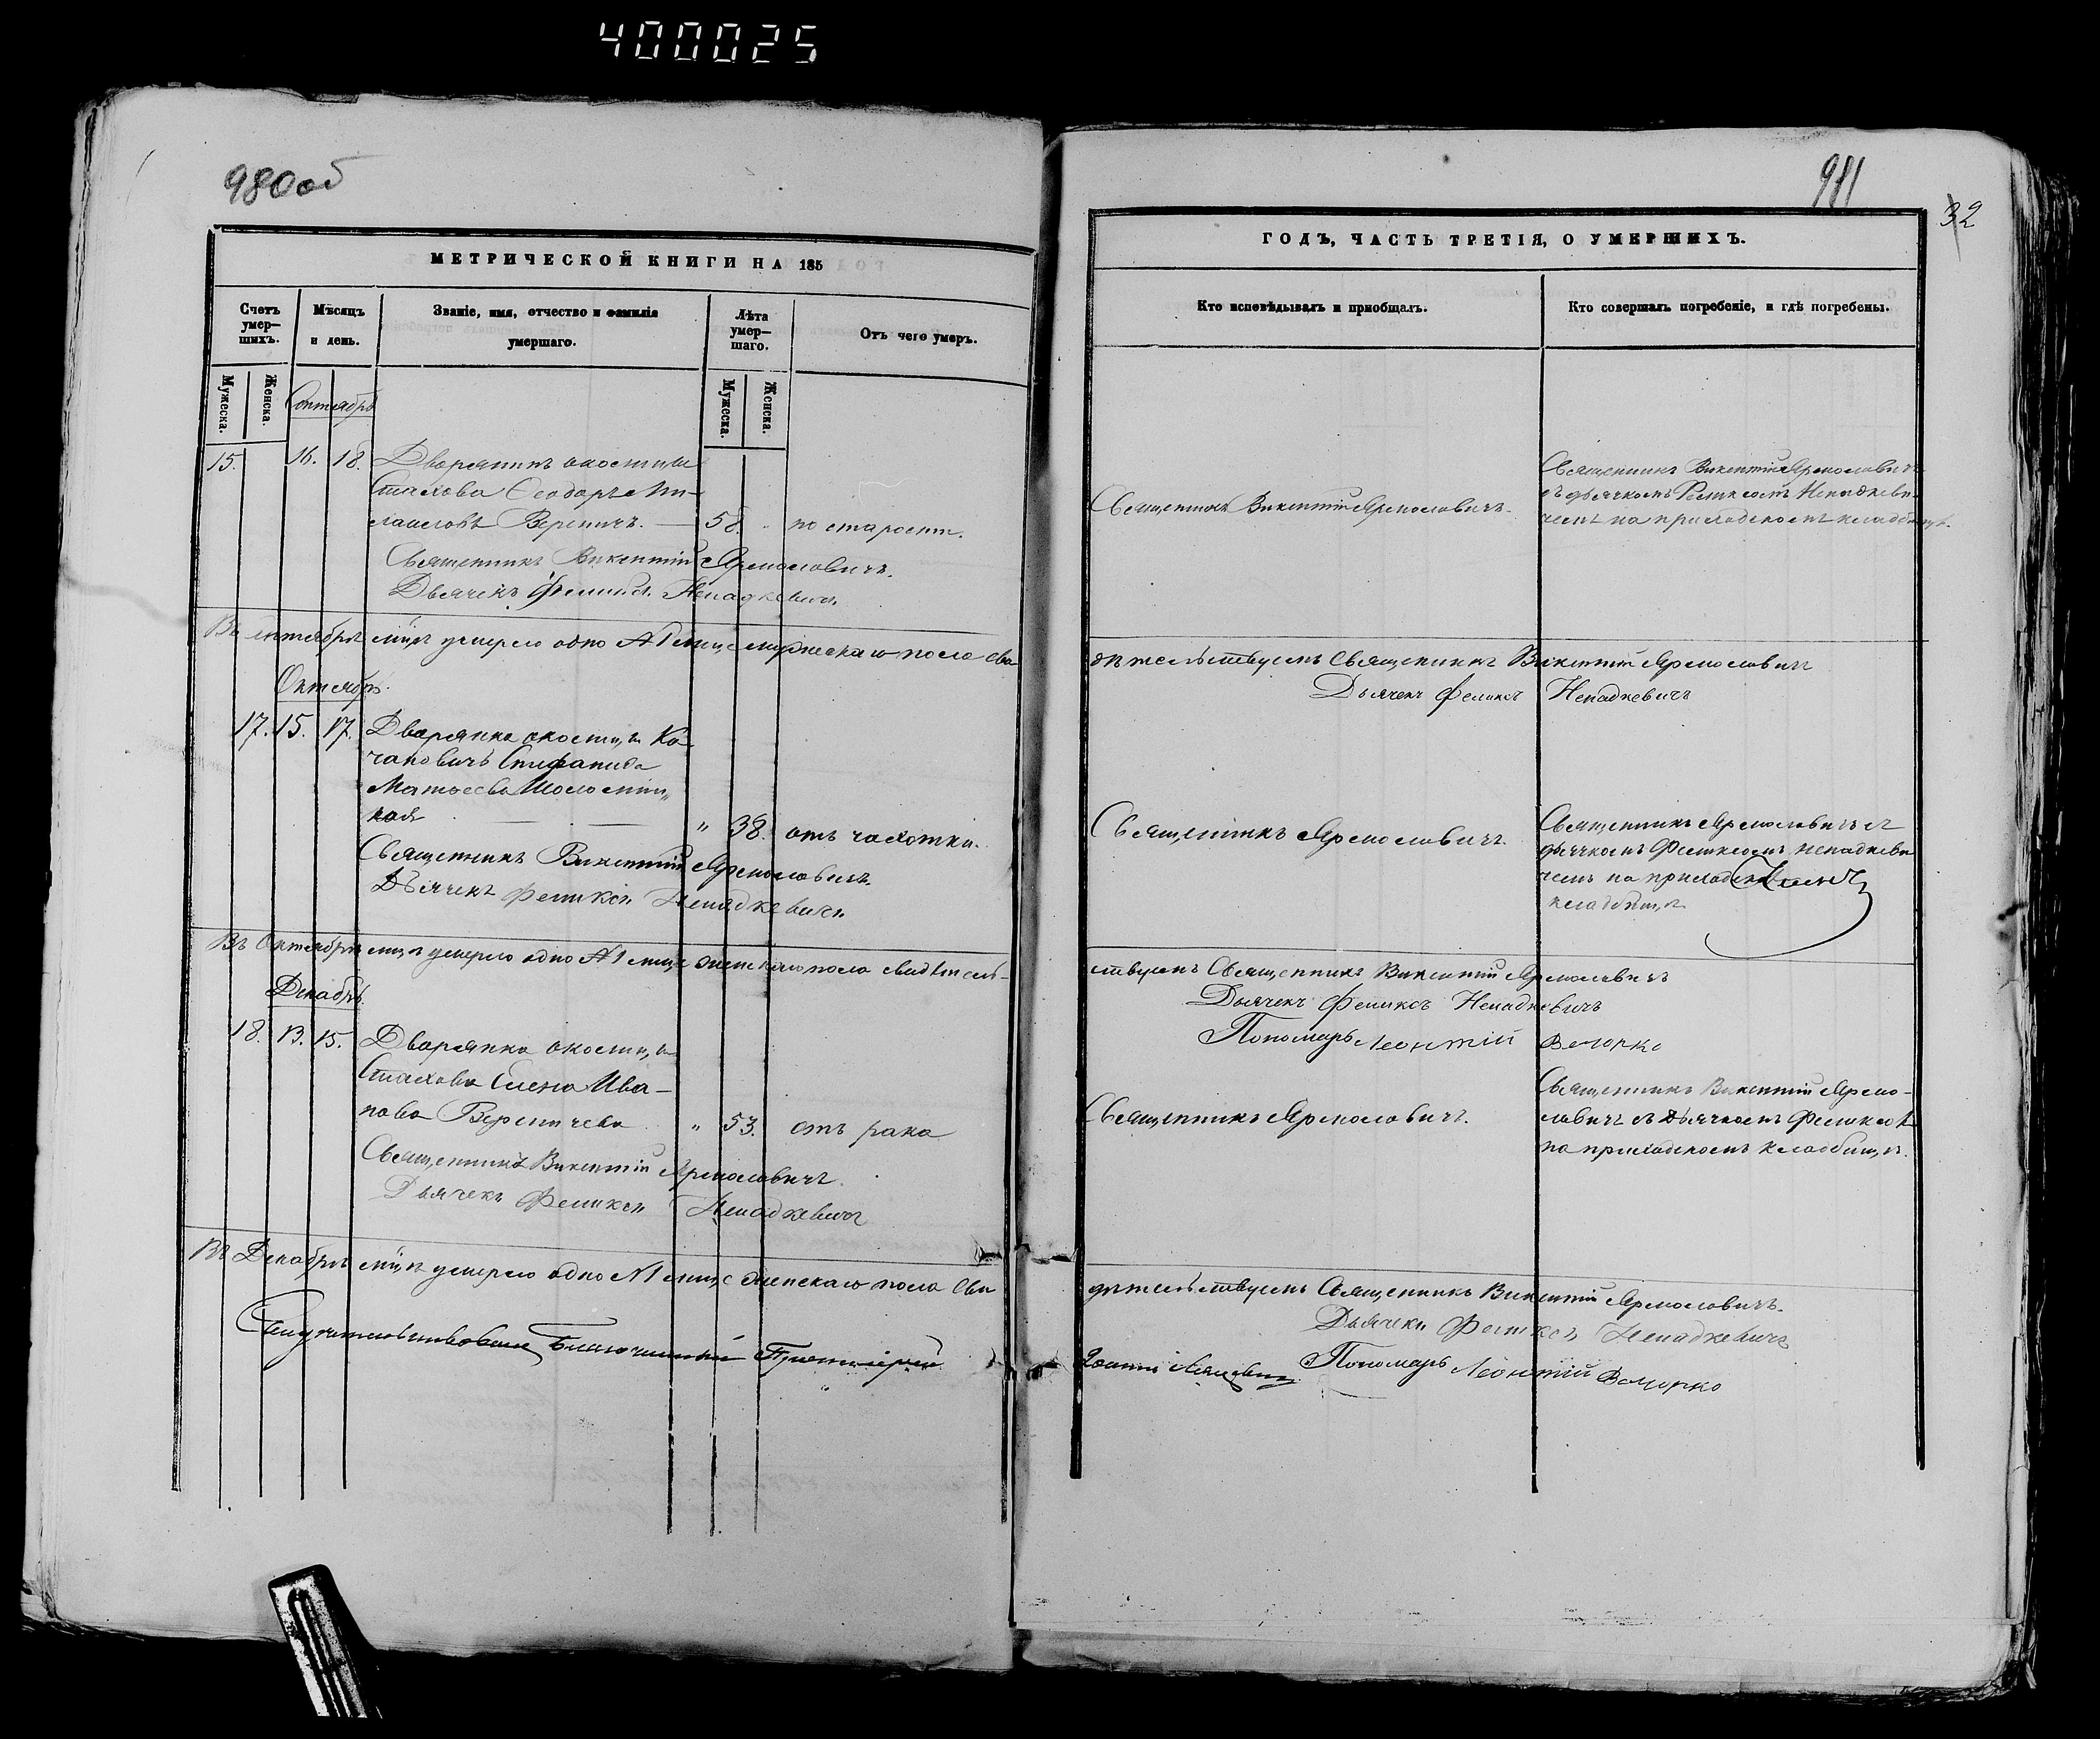 400025
980 об
МЕТРИЧЕСКОЙ КНИГИ НА 185
Счетъ умер-
шихъ.
Мѣсяцъ
и день.
Званіе, имя, отчество и фамилія
умершаго.
Лѣта
умер-
шаго.
Отъ чего умеръ.
Мужеска.
Женска.
Мужеска.
Женска.
Сентябрь
15. 16. 18. Дворянинъ околицы
Стахова Ѳеодоръ
Вереничъ. — 58. по старости.
Священникъ Викентій Ярмоловичъ.
Дьячекъ Феликсъ Ненадкевичъ
Въ сентябрѣ мцѣ умерло одно № 1 лице мужескаго пола сви
Октябрь.
17. 15. 17. Дворянка околицы Ко
чановичъ Епифанида
Матѳеева
кая — — " 38. отъ чахотки.
Священникъ Викентій Ярмоловичъ.
Дьячекъ Феликсъ Ненадкевичъ
Въ Октябрѣ мцѣ умерло одно № 1 лице женскаго пола свидѣтель-
Декабрь.
18. 13. 15. Дворянка околицы
Стахова Елена Ива-
нова Вереничева " 53. отъ рака
Священникъ Викентій Ярмоловичъ.
Дьячекъ Феликсъ Ненадкевичъ
Въ Декабрѣ мцѣ умерло одно № 1 лице женскаго пола сви
Благочинный
981
32
ГОДЪ, ЧАСТЬ ТРЕТІЯ, О УМЕРШИХЪ.
Кто исповѣдывалъ и приобщалъ.
Кто совершалъ погребеніе, и гдѣ погребены.
Священникъ Викентій Ярмоловичъ.
Священникъ Викентій Ярмоловичъ
съ дьячкомъ Феликсомъ Ненадкеви-
чемъ на приходскомъ кладбищѣ.
дѣтельствуемъ Священникъ Викентій Ярмоловичъ
Дьячекъ Феликсъ Ненадкевичъ
Священникъ Ярмоловичъ.
Священникъ Ярмоловичъ съ
дьячкомъ Феликсомъ Ненадкеви
чемъ на приходскомъ
кладбищѣ
ствуемъ Священникъ Викентій Ярмоловичъ
Дьячекъ Феликсъ Ненадкевичъ
Пономарь Леонтій Вечорко
Священникъ Ярмоловичъ.
Священникъ Викентій Ярмо-
ловичъ съ Дьячкомъ Феликсом
на приходскомъ кладбищѣ.
дѣтельствуемъ Священникъ Викентій Ярмоловичъ.
Дьячекъ Феликсъ Ненадкевичъ
Пономарь Леонтій Вечорко